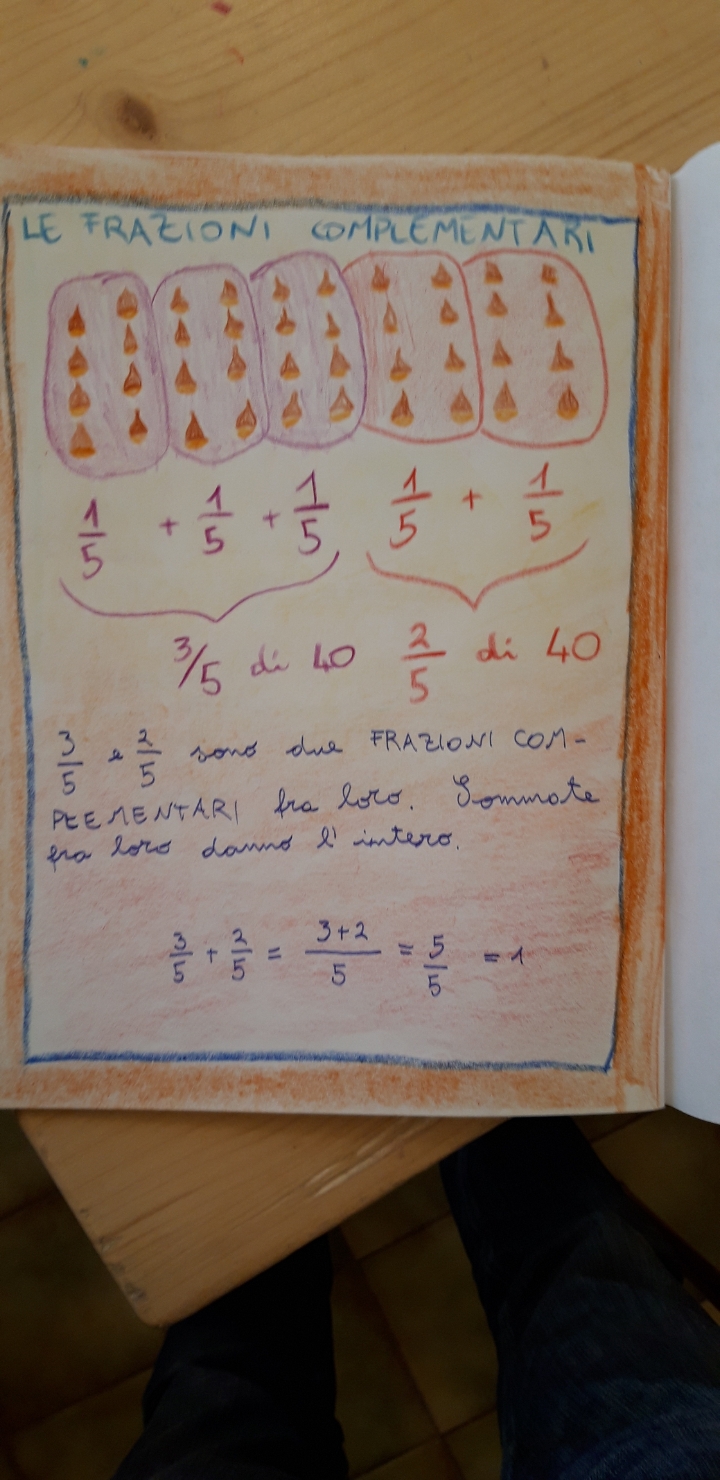 LE FRAZIONI COMPLEMENTARI
1/5 + 1/5 + 1/5 1/5 + 1/5
3/5 di 40 2/5 di 40
3/5 e 2/5 sono due FRAZIONI COM-
PLEMENTARI fra loro. Sommate
fra loro danno l'intero.
3/5 + 2/5 = 3+2/5 = 5/5 = 1